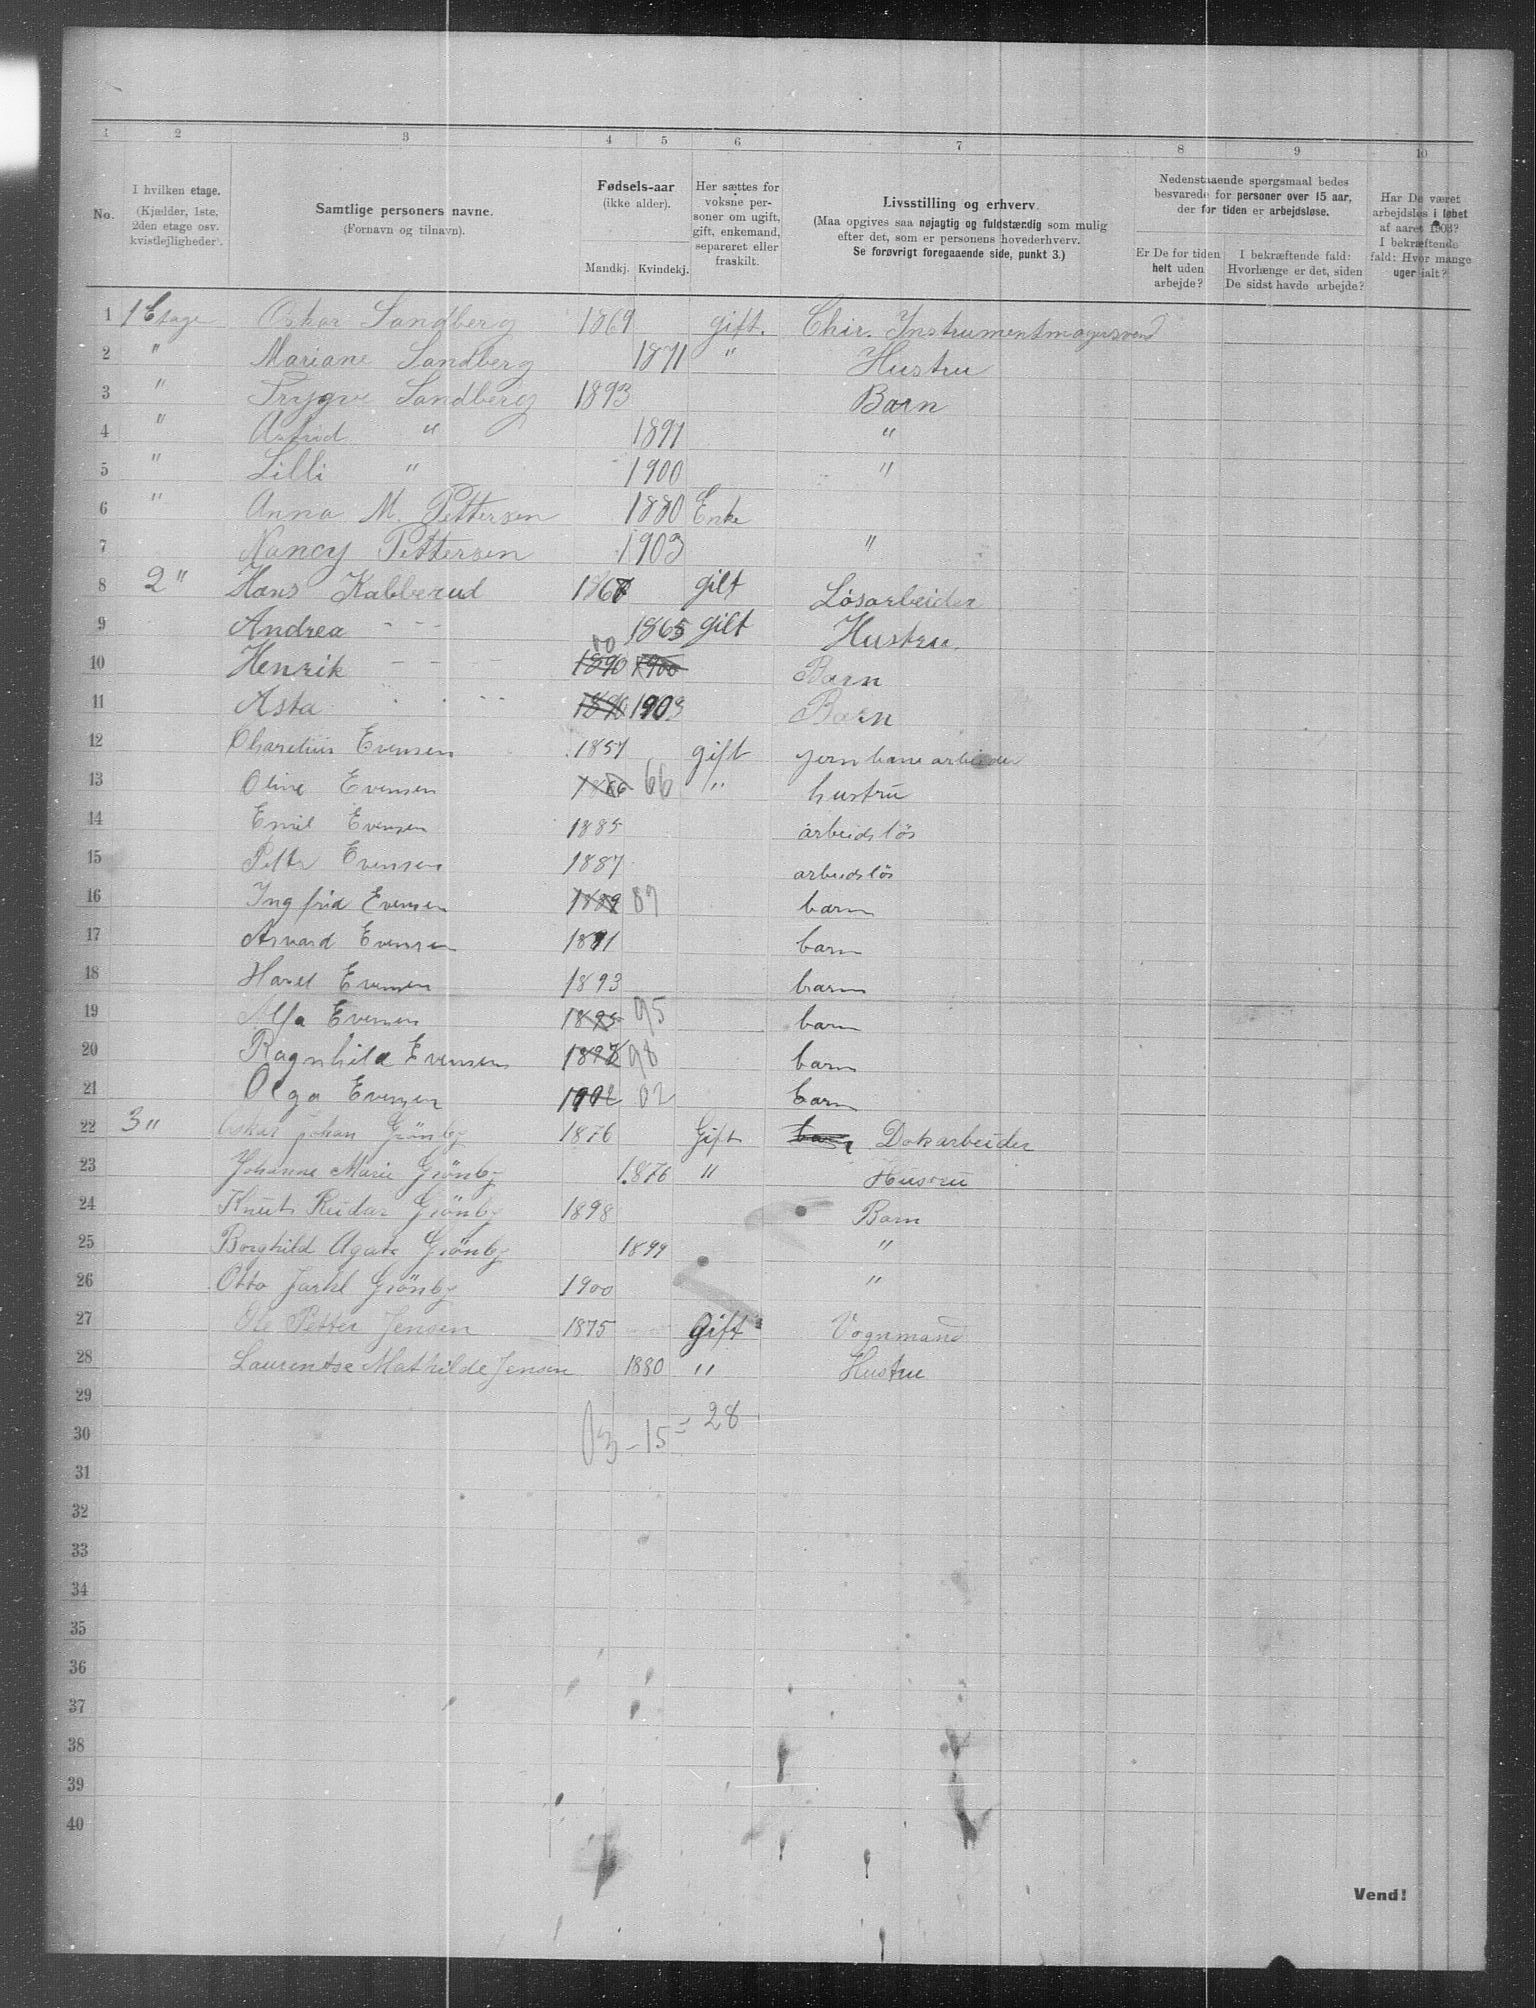 1 2 3 4 5 6 7 8 9 10
No.
I hvilken etage.
(Kjælder, 1ste,
2den etage osv.
kvistlejligheder).
Samtlige personers navne.
(Fornavn og tilnavn).
Fødsels-aar
(ikke alder).
Mandkj. Kvindekj.
Her sættes for
voksne per-
soner om ugift,
gift, enkemand,
separeret eller
fraskilt.
Livsstilling og erhverv.
(Maa opgives saa nøjagtig og fuldstændig som mulig
efter det, som er personens hovederhverv.
Se forøvrigt foregaaende side, punkt 3.)
Nedenstaaende spørgsmaal bedes
besvarede for personer over 15 aar,
der for tiden er arbejdsløse.
Er De for tiden
helt uden
arbejde?
I bekræftende fald:
Hvorlænge er det, siden
De sidst havde arbejde?
Har De været
arbejdsløs i løbet
af aaret 1903?
I bekræftende
fald: Hvor mange
uger ialt?
1 1 Etage Oskar Sandberg 1869 gift. Chir. Instrumentmagersvend
2 " Mariane Sandberg 1871 " Hustru
3 " Trygve Sandberg 1893 Barn
4 " Astrid " 1897 "
5 " Lilli " 1900 "
6 " Anna M. Pettersen 1880 Enke
7 Nancy Pettersen 1903 "
8 2 " Hans Kabberud 1867 gift Løsarbeider
9 Andrea - - - 1865 gift Hustru.
10 Henrik - - - 1890 00 1900 Barn
11 Asta - - - 1890 1903 Barn
12 Charetius Evensen 1857 gift jernbanearbeider
13 Oline Evensen 1866 66 " hustru
14 Emil Evensen 1885 arbeidsløs
15 Petter Evensen 1887 arbeidsløs
16 Ingfrid Evensen 1889 89 barn
17 Asvard Evensen 1891 barn
18 Harel Evensen 1893 barn
19 Alfa Evensen 1895 95 barn
20 Ragnhild Evensen 1898 98 barn
21 Olga Evensen 1902 02 barn
22 3 " Oskar Johan Grönby 1876 Gift barn Dokarbeider
23 Johanne Marie Grönby 1876 " Hustru
24 Knut Reidar Grönby 1898 Barn
25 Borghild Agate Grönby 1899 "
26 Otto Jarkel Grönby 1900 "
27 Ole Petter Jensen 1875 Gift Vognmand
28 Laurentse Mathilde Jensen 1880 " Hustru
29
30 13 - 15 = 28
31
32
33
34
35
36
37
38
39
40
Vend!